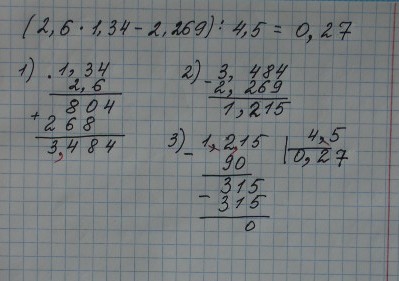 (2,6 · 1,34 - 2,269) : 4,5 = 0,27
1) . 1,34
2,6
804
+ 268
3,484
2) - 3,484
2,269
1,215
3) - 1,2,15 | 4,5
90 0,27
315
- 315
0